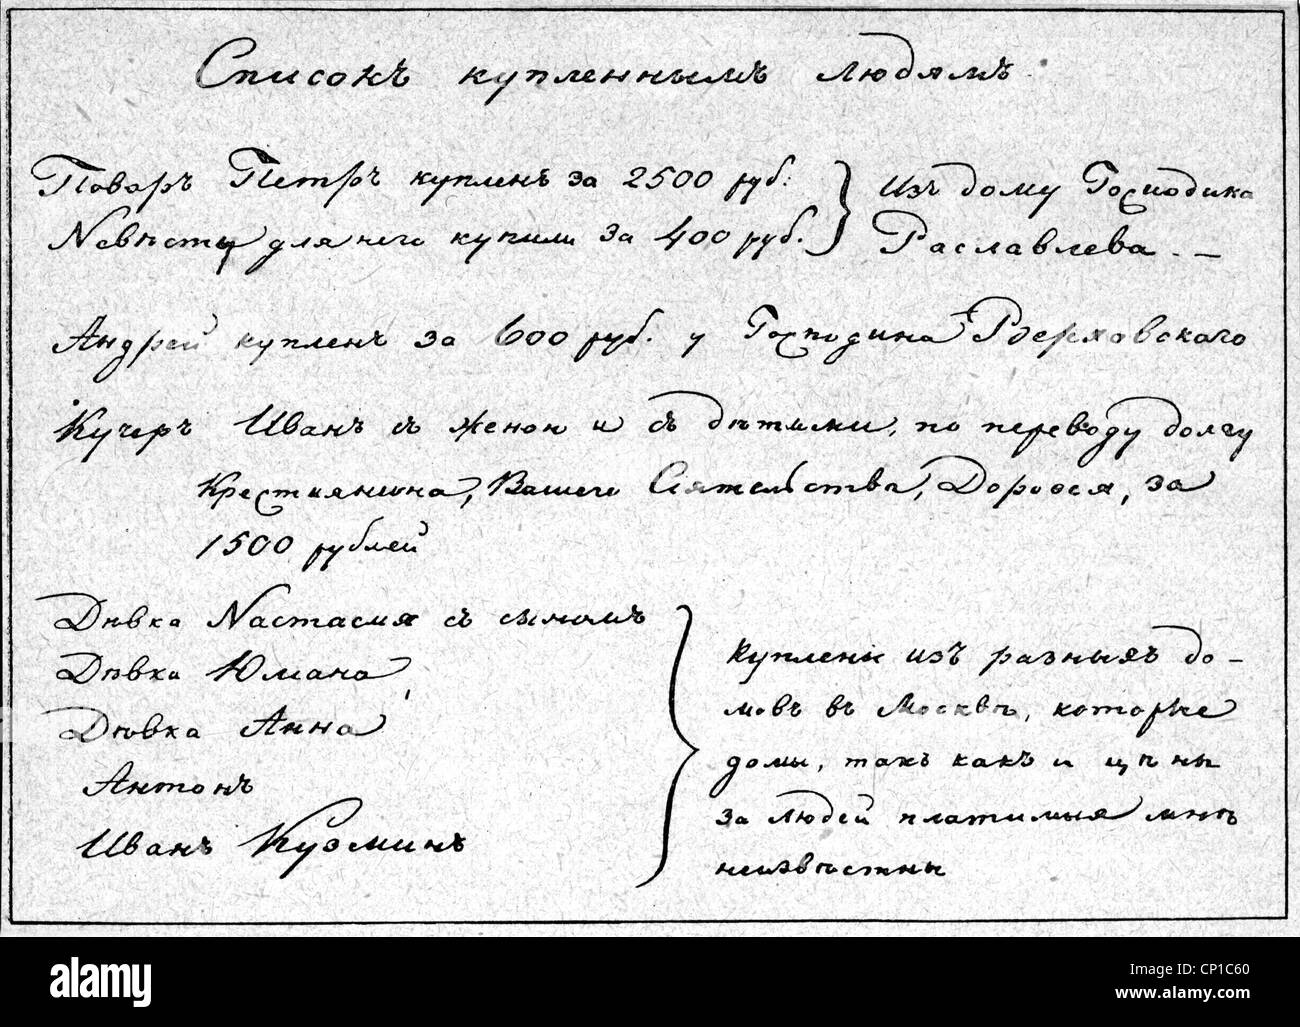 Списокъ купленнымъ людямъ.
Поваръ Петръ купленъ за 2500 руб:
Невѣсту для него купили за 400 руб.
Изъ дому Господина
Раславлева. —
Андрей купленъ за 600 руб. у Господина Ржевского
Кучеръ Иванъ съ женой и съ дѣтьми, по переводу долгу
крестьянина, Вашего Сіятельства, Дорофея, за
1500 рублей
Дѣвка Настасия съ сыномъ
Дѣвка
Дѣвка Анна
Антонъ
Иванъ Кузминъ
куплены изъ разныхъ до-
мовъ въ Москвѣ, которые
домы, такъ какъ и цѣны
за людей платимыя мнѣ
неизвѣстны
alamy
Image ID: CP1C60
www.alamy.com